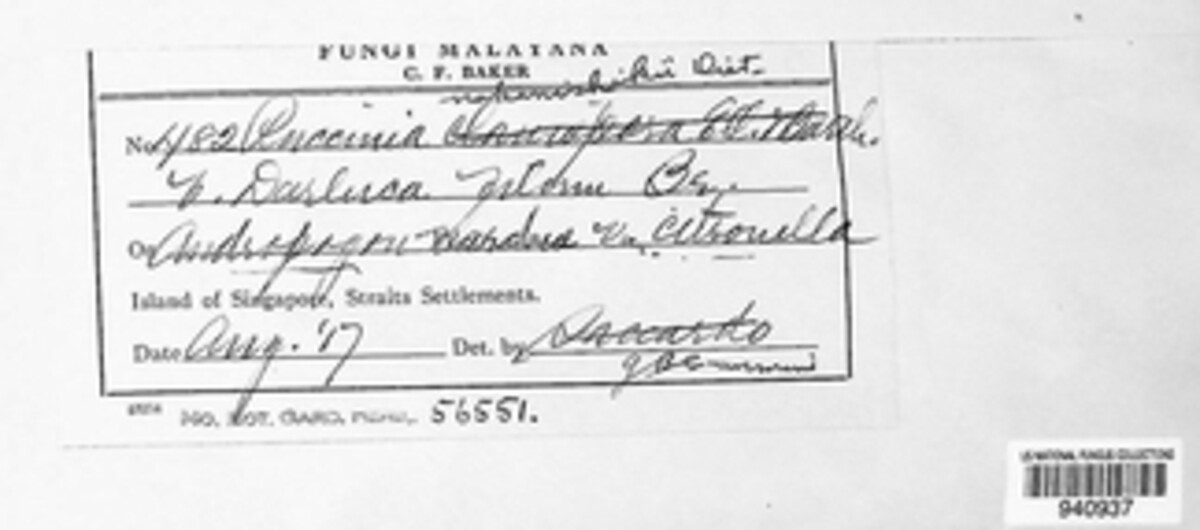 FUNGI MALAYANA
C. F. BAKER
nakanishikii Diet.
No 482 Puccinia
v. Darluca filum
On Andropogon nardus v. citronella
Island of Singapore, Straits Settlements.
Date Aug. '17 Det. by Saccardo
MO. BOT. GARD. HERB. 56551.
US NATIONAL FUNGUS COLLECTIONS
940937